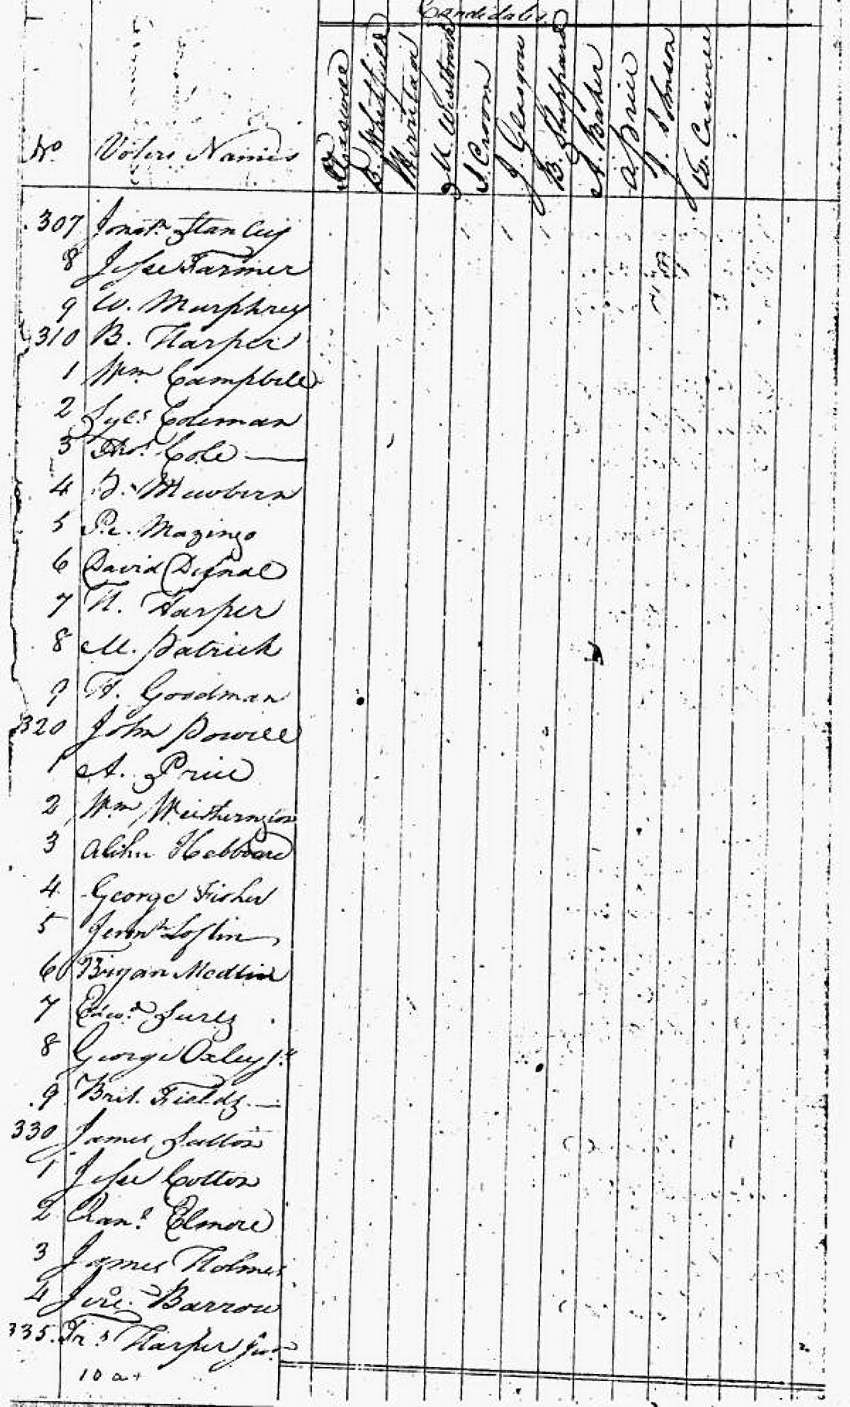 Candidates
No Voters Names R Caswell Whitfield W. M. Wiltbank J Croom J Glasgow B. Sheppard A. Baker A. Price J. Johnson W. Caswell
307 Jonatn Stanley
8 Jesse Farmer
9 W. Murphrey
310 B. Harper
1 Wm Campbell
2 Coleman
3 Thos Cole
4 Mewborn
5 Mazingo
6 David Dignal
7 H. Harper
8 M. Patrick
9 H. Goodman
320 John Powell
1 A. Price
2 Wm Weatherington
3 Hebboard
4 George Fisher
5 Loftin
6 Bryan Medlin
7 Edwd
8 George Oxley Jr
9 Brit. Fields
330 James Sutton
1 Jesse Cotton
2 Elmore
3 James Holmes
4 Barrow
335. Frs Harper Junr
10 at